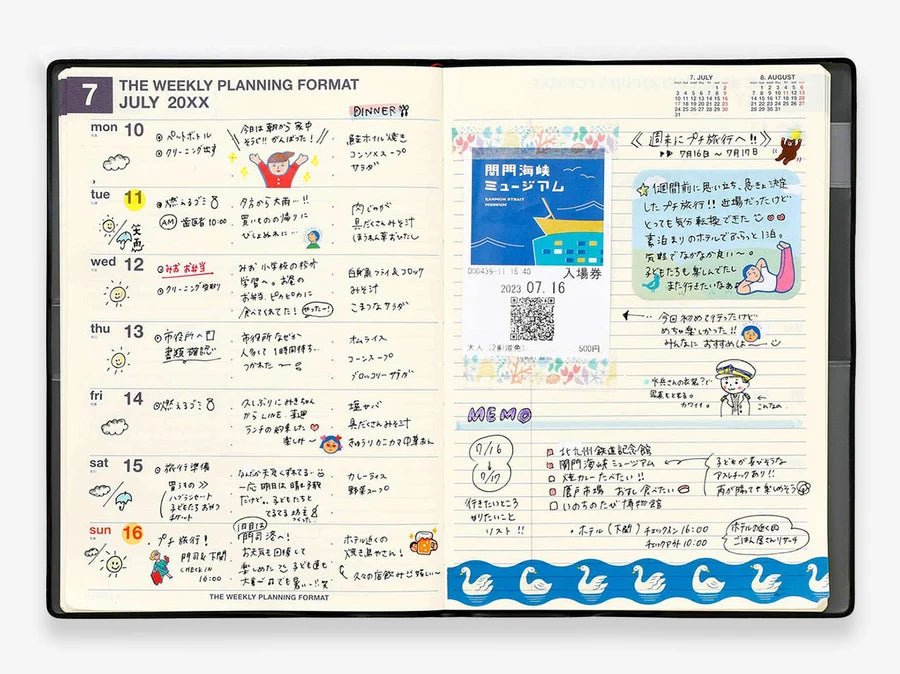 7
THE WEEKLY PLANNING FORMAT
JULY 20XX
DINNER
mon 10
ペットボトル
クリーニング出す
今日は朝から家中
そうじ!! がんばった!
鮭ホイル焼き
コンソメスープ
サラダ
tue 11
燃えるゴミ
AM 歯医者 10:00
夕方から大雨…!!
買いもの帰りに
びしょぬれに…
肉じゃが
具だくさんみそ汁
ほうれん草おひたし
wed 12
みお お弁当
クリーニング受取り
みお 小学校の校外
学習へ。お昼の
お弁当、ピカピカに
食べてくれた! やったー!
白身魚フライ&コロッケ
みそ汁
こまつなサラダ
thu 13
市役所へ
書類確認
市役所なぜか
人多くて1時間待ち…
つかれた
オムライス
コーンスープ
ブロッコリーサラダ
fri 14
燃えるゴミ
久しぶりにみきちゃん
からLINE。来週
ランチの約束した
楽しみ
塩サバ
具だくさんみそ汁
きゅうりカニカマ中華あえ
sat 15
旅行準備
買うもの
ハブラシセット
子どもたちおやつ
なんか天気くずれてる…
一応明日は晴れ予報
だけど。子どもたちと
てるてる坊主
つくった
カレーライス
野菜スープ
sun 16
プチ旅行!
門司&下関
CHECK IN
16:00
1日目は
門司港へ!
お天気も回復して
楽しめた
ホテル近くの
焼き鳥やさん!
THE WEEKLY PLANNING FORMAT
7. JULY
8. AUGUST
《週末にプチ旅行へ!!》
7月16日〜7月17日
関門海峡
ミュージアム
KANMON STRAIT
MUSEUM
入場券
2023 07.16
500円
1週間前に思い立ち、急きょ決定
したプチ旅行!! 近場だったけど
とっても気分転換できた
素泊まりのホテルでふらっと1泊。
気軽でなかなか良い〜。
子どもたちも楽しんでたし
また行きたいなぁ
今回初めて行ったけど
めちゃ楽しかった!!
みんなにおすすめしよ
MEMO
7/16
↓
7/17
行きたいところ
やりたいこと
リスト!!
北九州鉄道記念館
関門海峡ミュージアム
焼カレーたべたい!!
唐戸市場 おすし食べたい
いのちのたび博物館
子どもが喜びそうな
アスレチックあり!!
雨が降っても楽しめそう
・ホテル(下関) チェックイン 16:00
チェックアウト 10:00
ホテルの近くの
ごはん屋さんリサーチ